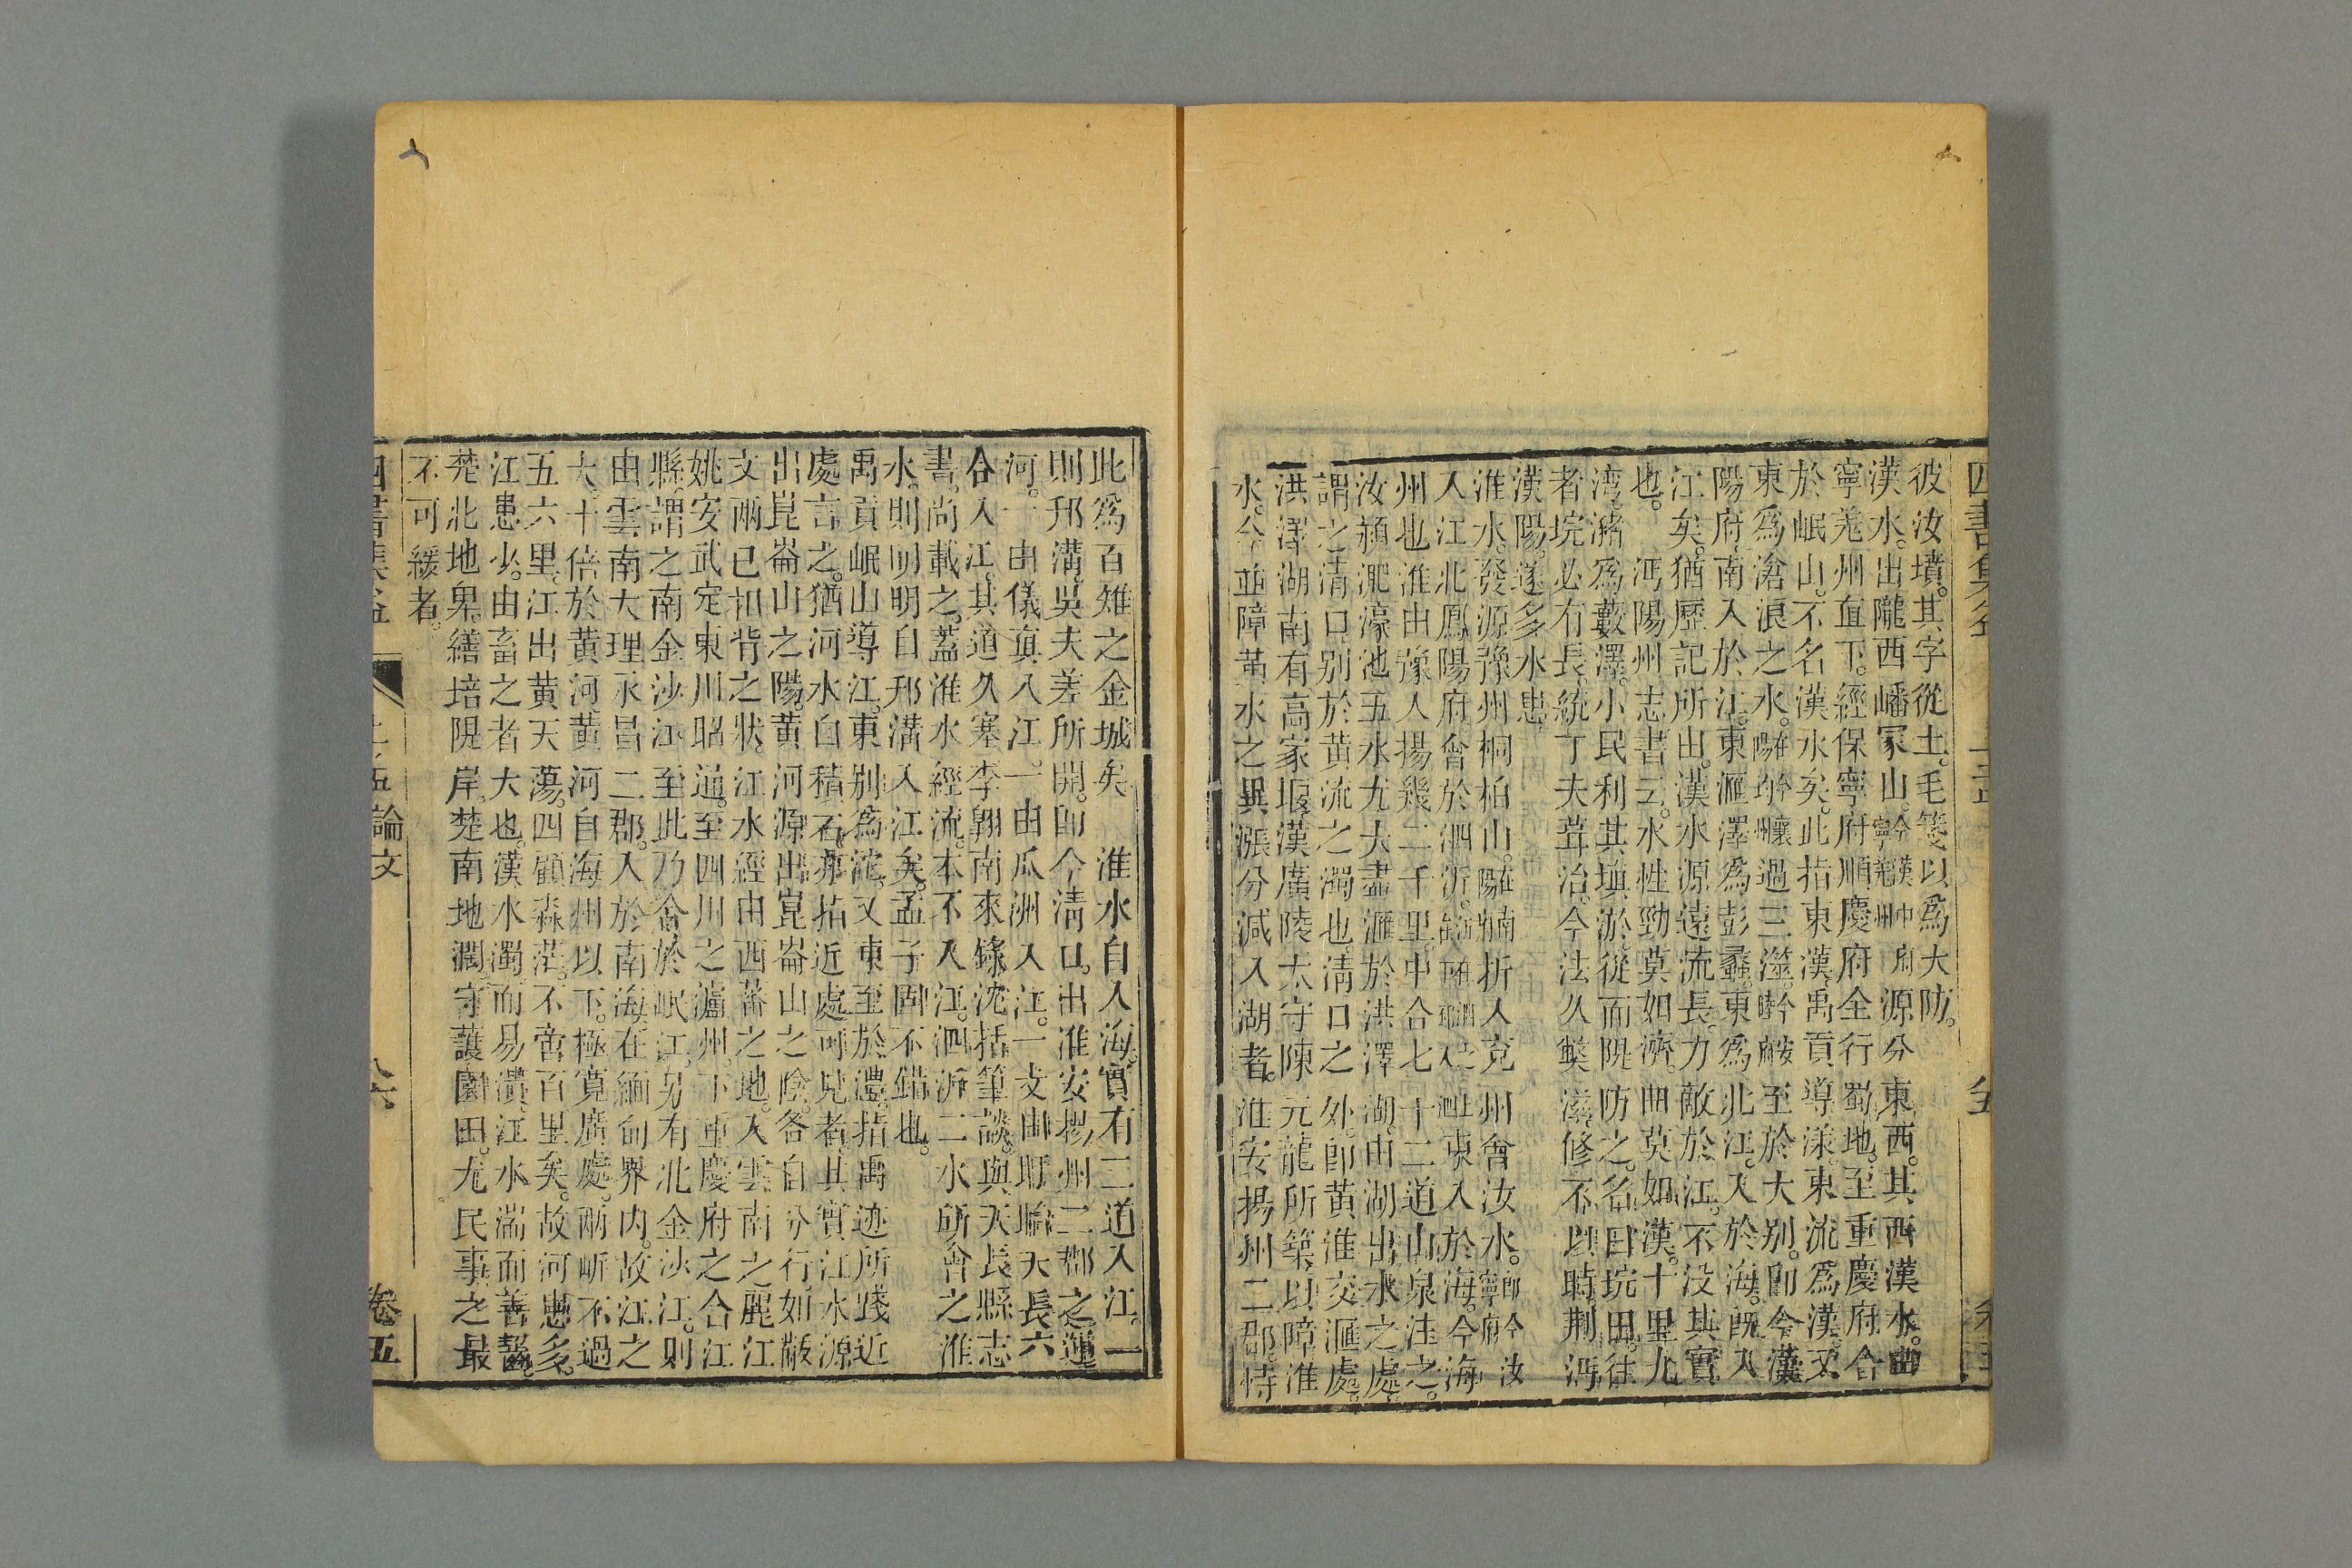 彼汝墳。其字從土。毛箋以爲大防。
漢水。出隴西嶓冢山。今漢中府寧羌州源分東西。其西漢水。由
寧羌州直下。經保寧府順慶府全行蜀地。至重慶府合
於岷山。不名漢水矣。此指東漢。禹貢導漾。東流爲漢。又
東爲滄浪之水。過三澨。至於大别。即今漢
陽府。南入於江。東滙澤爲彭蠡。東爲北江。入於海。既入
江矣。猶歷記所出。漢水源遠流長。力敵於江。不没其實
也。 沔陽州志書云。水性勁莫如濟。曲莫如漢。十里九
湾。瀦爲藪澤。小民利其填淤。從而隄防之。名曰垸田。往
者垸必有長。統丁夫葺治。今法久獘滋。修不以時。荆沔
漢陽。遂多水患。
淮水。發源豫州桐柏山。在南陽折入兖州會汝水。即今汝寧府
入江北鳳陽府會於泗沂。東入於海。今海
州也淮由豫入揚幾二千里。中合七十二道山泉注之。
汝潁淝濠池五水尢大盡滙於洪澤湖。由湖出水之處。
謂之清口。别於黄流之濁也。清口之外。即黄淮交滙處。
洪澤湖南有高家堰。漢廣陵太守陳元龍所築。以障淮
水。今並障黄水之異漲分減入湖者。淮安揚州二郡。恃
此爲百雉之金城矣 淮水自入海。實有三道入江。一
則邗溝。吳夫差所開。即今清口。出淮安揚州二郡之運
河。一由儀真入江。一由瓜洲入江。一支由盱眙天長六
合入江。其道久塞。李翺南來錄。沈括筆談。與天長縣志
書。尚載之。蓋淮水經流。本不入江。泗沂二水所會之淮
水。則明明自邗溝入江矣。孟子固不錯也。
禹貢岷山導江。東别爲沱。又東至於澧。指禹迹所踐近
處言之。猶河水自積石。亦指近處可見者。其實江水源
出崑崙山之陽。黄河源出崑崙山之陰。各自分行。如敵
文兩已相背之狀。江水經由西蕃之地。入雲南之麗江
姚安武定東川昭通。至四川之瀘州。下重慶府之合江
縣。謂之南金沙江。至此乃會於岷江。另有北金沙江。則
由雲南大理永昌二郡。入於南海。在緬甸界内。故江之
大。十倍於黄河。黄河自海州以下。極寛廣處。兩岍不過
五六里。江出黄天蕩。四顧淼茫。不啻百里矣。故河患多。
江患少。由畜之者大也。漢水濁而易潰。江水湍而善齧。
楚北地卑。繕培隄岸。楚南地濶。守護圍田。尢民事之最
不可緩者。
四書集益
上之五論文
卷五